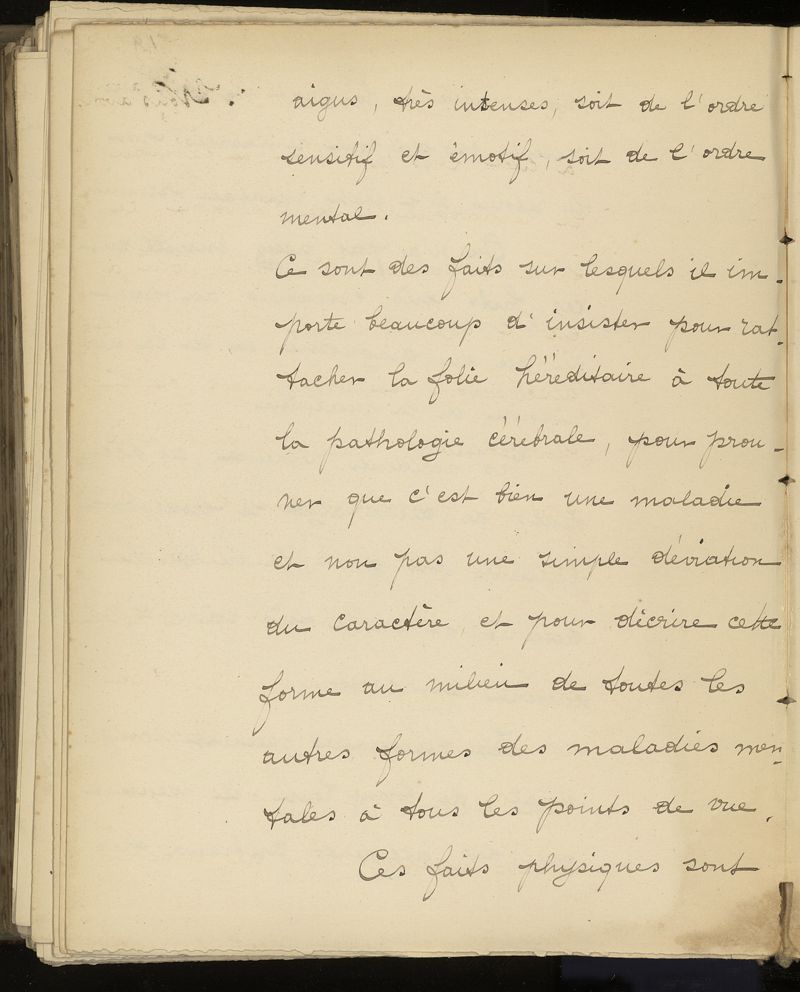 aigus, très intenses, soit de l'ordre
sensitif et émotif, soit de l'ordre
mental.
Ce sont des faits sur lesquels il im-
porte beaucoup d'insister pour rat-
tacher la folie héréditaire à toute
la pathologie cérébrale, pour prou-
ver que c'est bien une maladie
et non pas une simple déviation
du caractère, et pour décrire cette
forme au milieu de toutes les
autres formes des maladies men-
tales à tous les points de vue.
Ces faits physiques sont